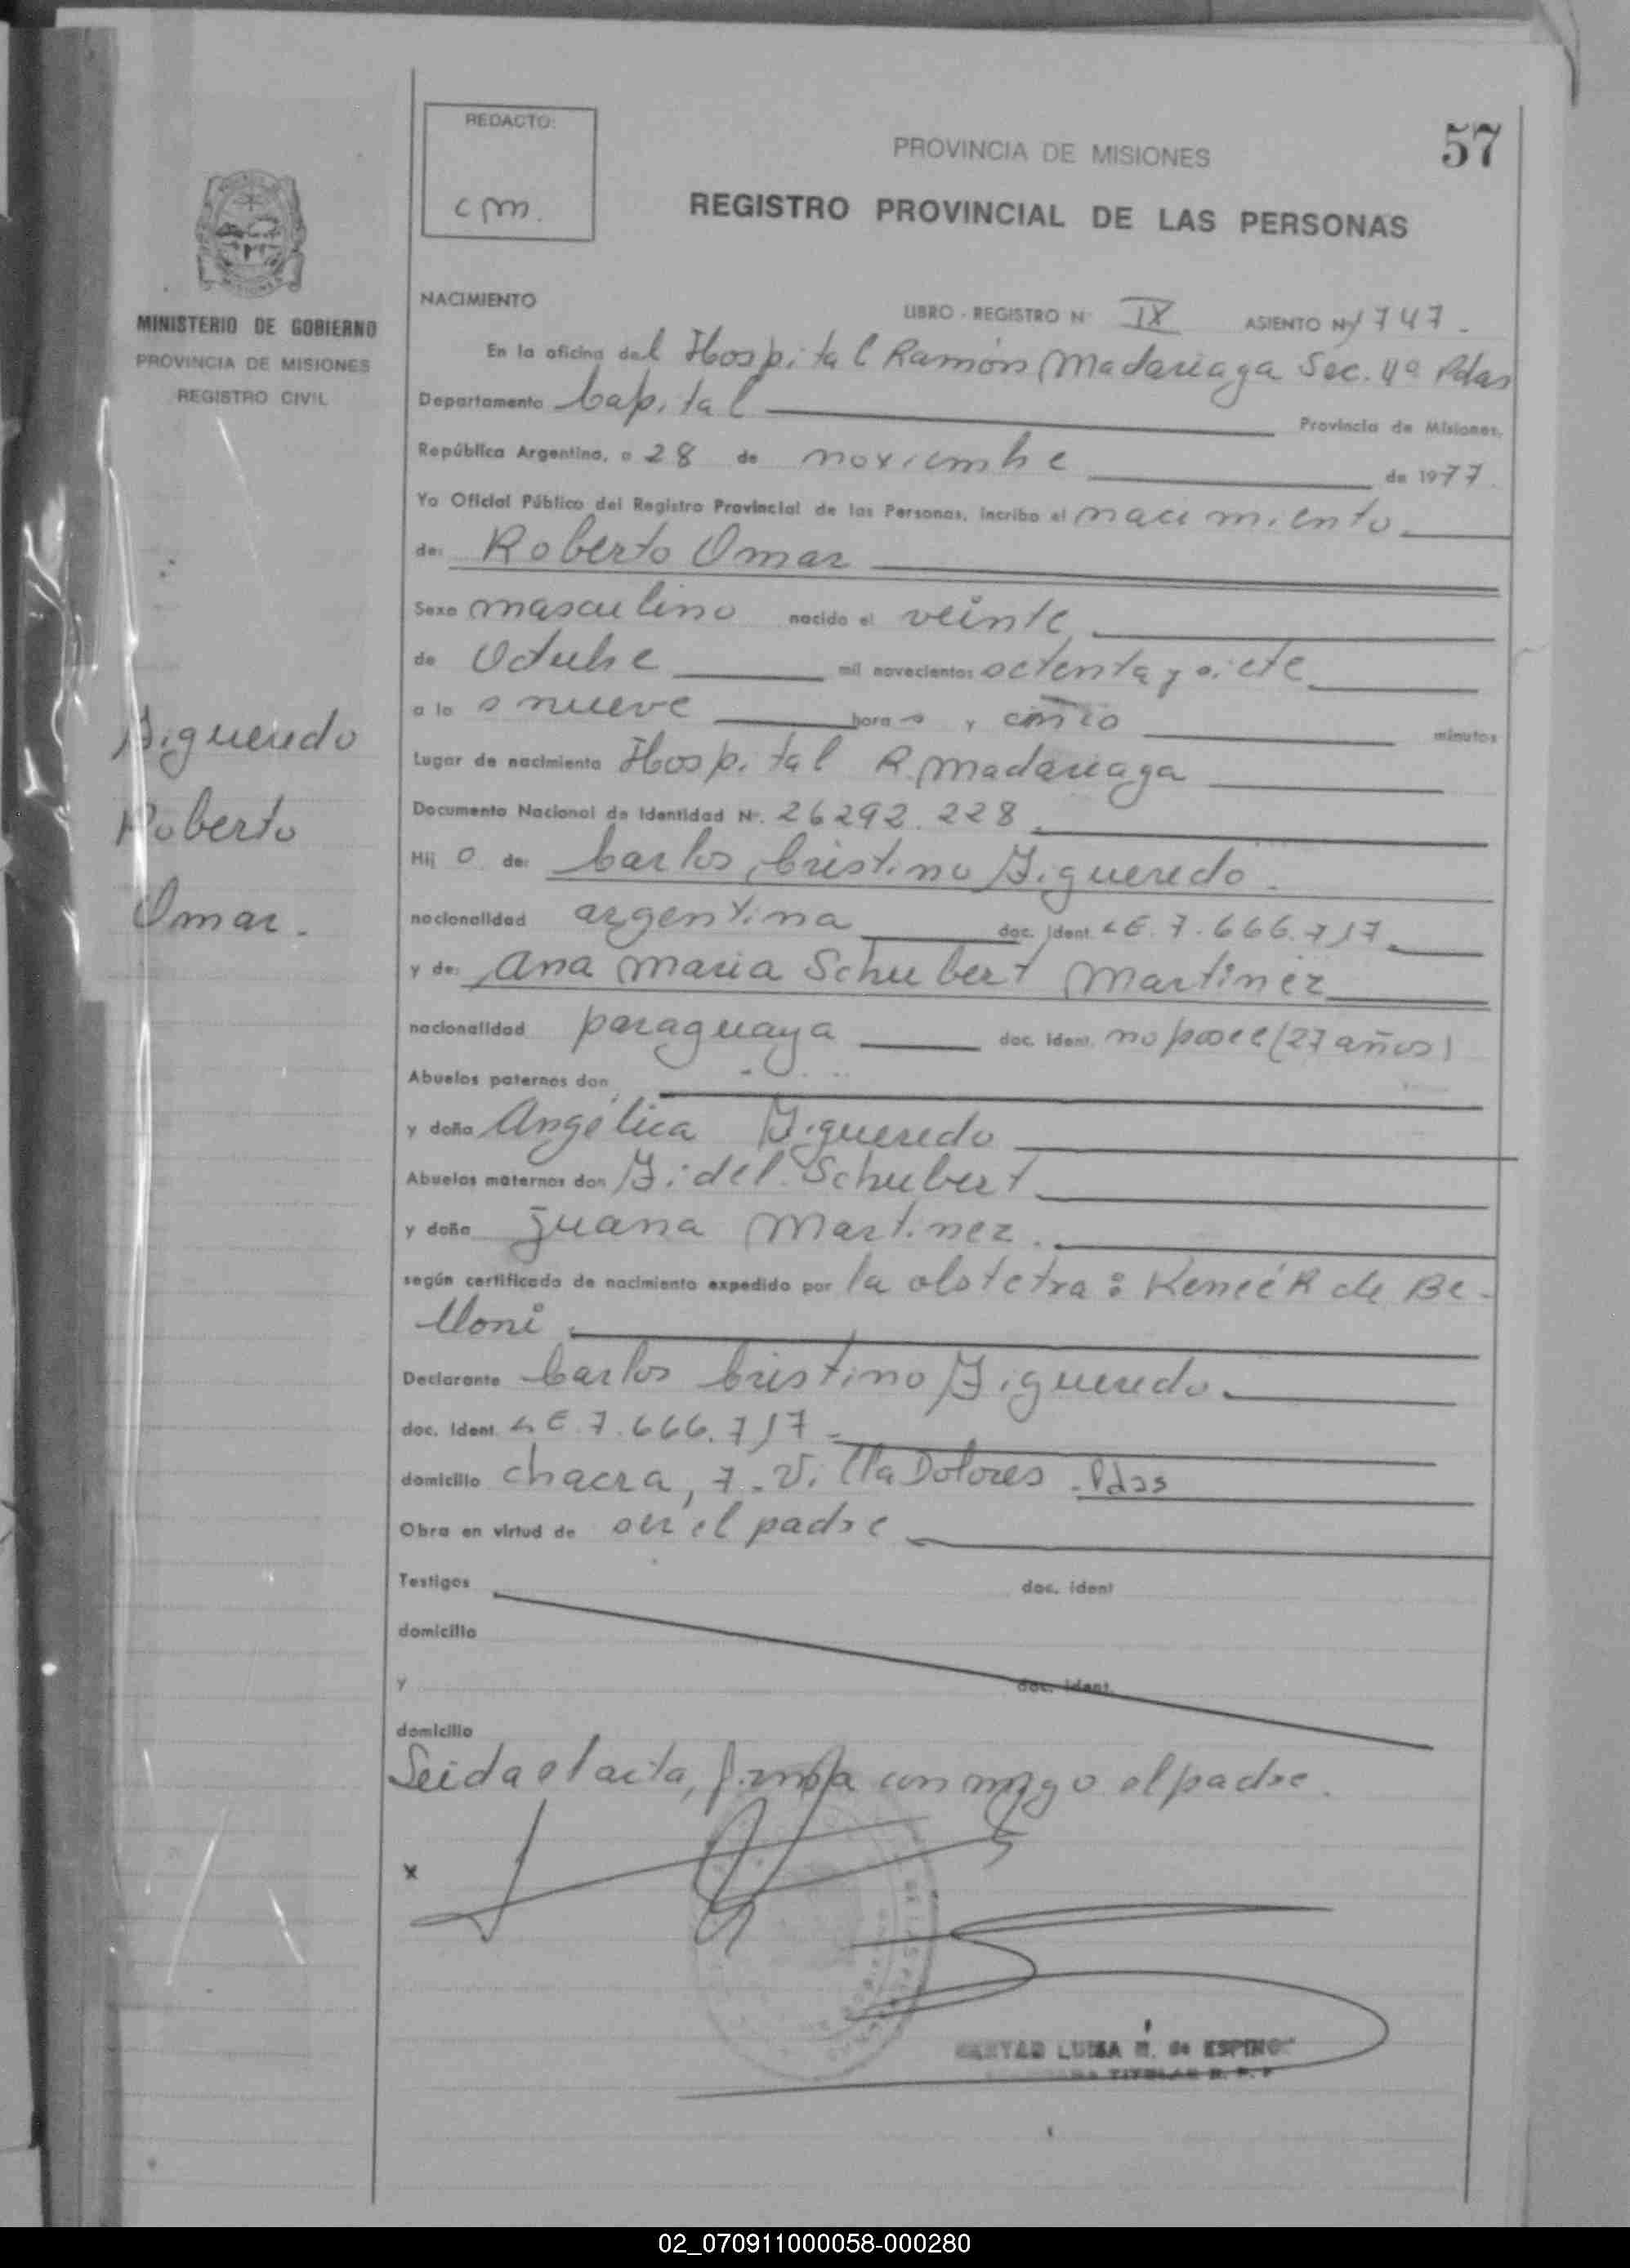 REDACTO:
cm.
57
PROVINCIA DE MISIONES
REGISTRO PROVINCIAL DE LAS PERSONAS
MINISTERIO DE GOBIERNO
PROVINCIA DE MISIONES
REGISTRO CIVIL
Figueredo
Roberto
Omar.
NACIMIENTO LIBRO - REGISTRO Nº IX ASIENTO Nº 1747.
En la oficina del Hospital Ramón Madariaga Sec. 4ª Pdas
Departamento Capital Provincia de Misiones,
República Argentina, a 28 de noviembre de 1977.
Yo Oficial Público del Registro Provincial de las Personas, incribo el nacimiento
de: Roberto Omar
Sexo masculino nacido el veinte
de Octubre mil novecientos setenta y siete
a las nueve horas y cinco minutos
Lugar de nacimiento Hospital R. Madariaga
Documento Nacional de Identidad Nº. 26292.228
Hijo de: Carlos Cristino Figueredo.
nacionalidad argentina doc. ident. LE. 7.666.717.
y de: Ana Maria Schubert Martinez
nacionalidad paraguaya doc. ident. no posee (27 años)
Abuelos paternos don
y doña Angélica Figueredo
Abuelos maternos don Fidel Schubert
y doña Juana Martinez.
según certificado de nacimiento expedido por la obstetra: K de Be-
lloni
Declarante Carlos Cristino Figueredo.
doc. ident. LE. 7.666.717
domicilio chacra, 7. Villa Dolores. Pdas
Obra en virtud de ser el padre
Testigos doc. ident
domicilio
y doc. ident.
domicilio
Leida el acta, firma conmigo el padre.
x
LUISA de ESPINO
TITULAR R. P. P
02_070911000058-000280